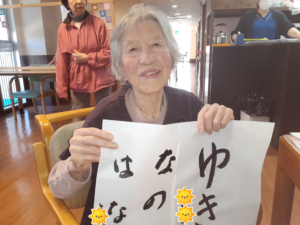 ゆき
なの
はな